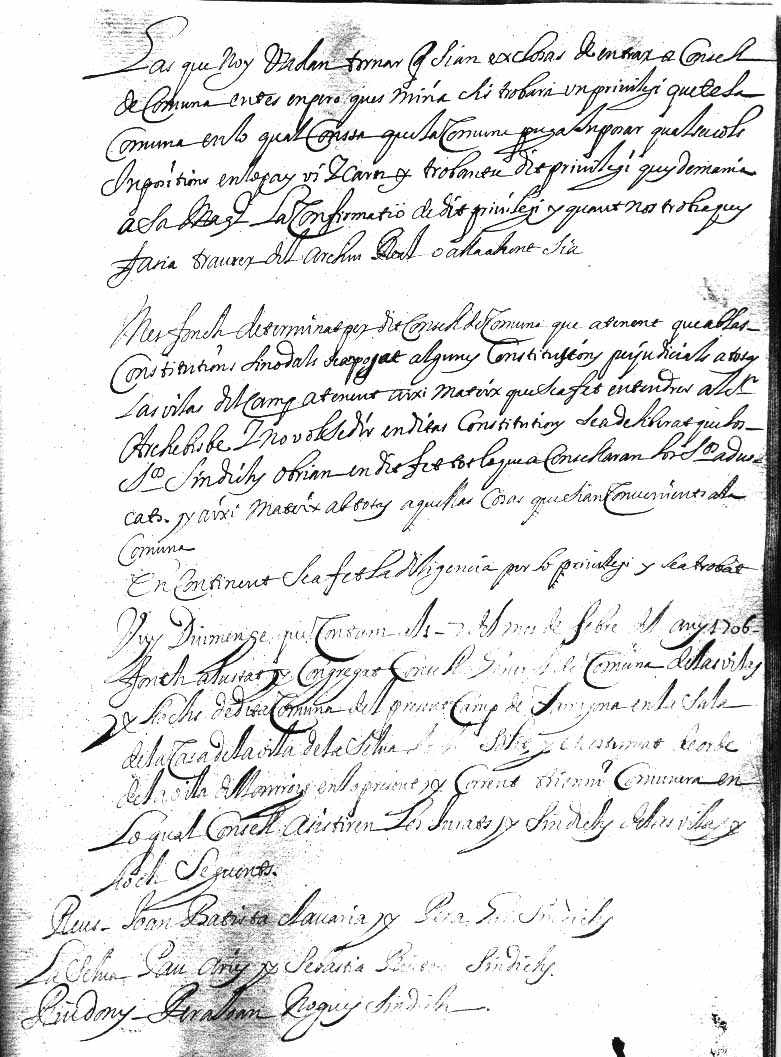 Las que noy vndan tornar q sian exclosas de entrar a Consell
de Comuna entes empero ques mira chis trobara vn privilegi que de la
Comuna en lo qual Consta que la Comuna puga Inposar qualseuols
Inpositions en lo pa y vi y Carn y trobantse dit privilegi quey demania
a Sa Magt La Confirmatio de dit privilegi y quant nos trobia quey
faria traurer del Archiu Real o alla ahont sia
Mes fonch determinat per dit Consell de Comuna que atenent que ab las
Constitutions Sinodals sea pojat algunes Constitutions prejudicials a totas
Las vilas del Camp atenent aixi mateix que sea fet entendrer al Sr
Archebisbe y no vol sedir en ditas Constitutions sea deliberat que los
Srs Sindichs obrian en dit fet tot lo que aConsellaran los Srs aduo
cats. y aixi mateix ab totas aquellas Cosas que sian Convenients a la
Comuna
En Continent sea fet la diligencia per lo privilegi y sea trobat
Vuy Diumenge que Contam als 7 del mes de febre del any 1706
fonch aIustat y Congregat Consell General de Comuna de las vilas
y lochs de dita Comuna del present Camp de Tarragona en la Sala
de la Casa de la vila de la Selva
de la vila del en lo present y Corrent trienni Comunera en
Lo qual Consell asistiren Los Iurats y Sindichs de las vilas y
loch Seguents.
Reus - Joan Batista clavaria y Pera Sindichs
La Selva Pau Aris y Sebastia Sindichs.
Riudoms - Pera Joan Nogues Sindich